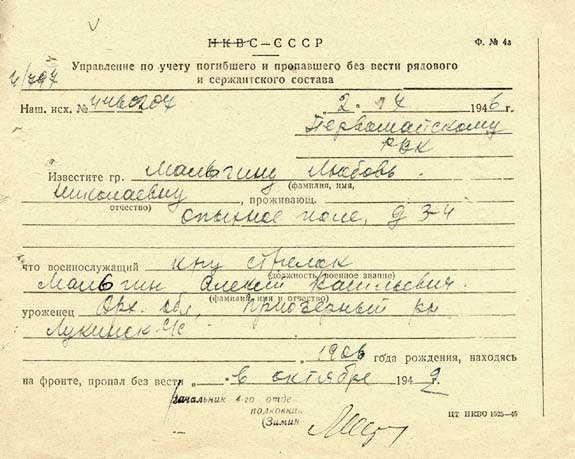 НКВС—СССР
Ф. № 4а
Управление по учету погибшего и пропавшего без вести рядового
и сержантского состава
4/797
Наш. исх. №
2. 1946 г.
Первомайскому
РВК
Известите гр. Мальгину Любовь
Николаевну
(фамилия, имя,
отчество)
, проживающ.
опытное поле, д 3-4
что военнослужащий кр-ц стрелок
(должность, военное звание)
Мальгин Алексей Васильевич.
(фамилия, имя и отчество)
уроженец Арх. обл, Приозерный рн
Лукинск. с/с
1906 года рождения, находясь
на фронте, пропал без вести „ - в октябре 1942.
Начальник 4-го отде
полковни
(Зимин
ЦТ НКВО 1525—45